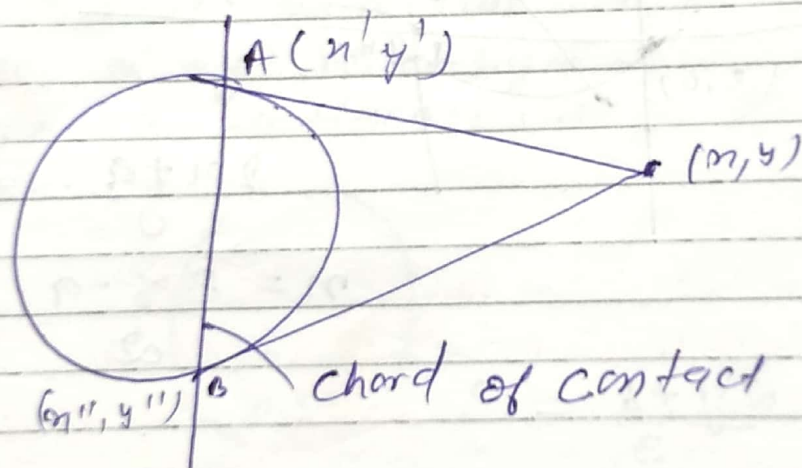 A (x' y')
(x, y)
B
Chord of contact
(x'', y'')